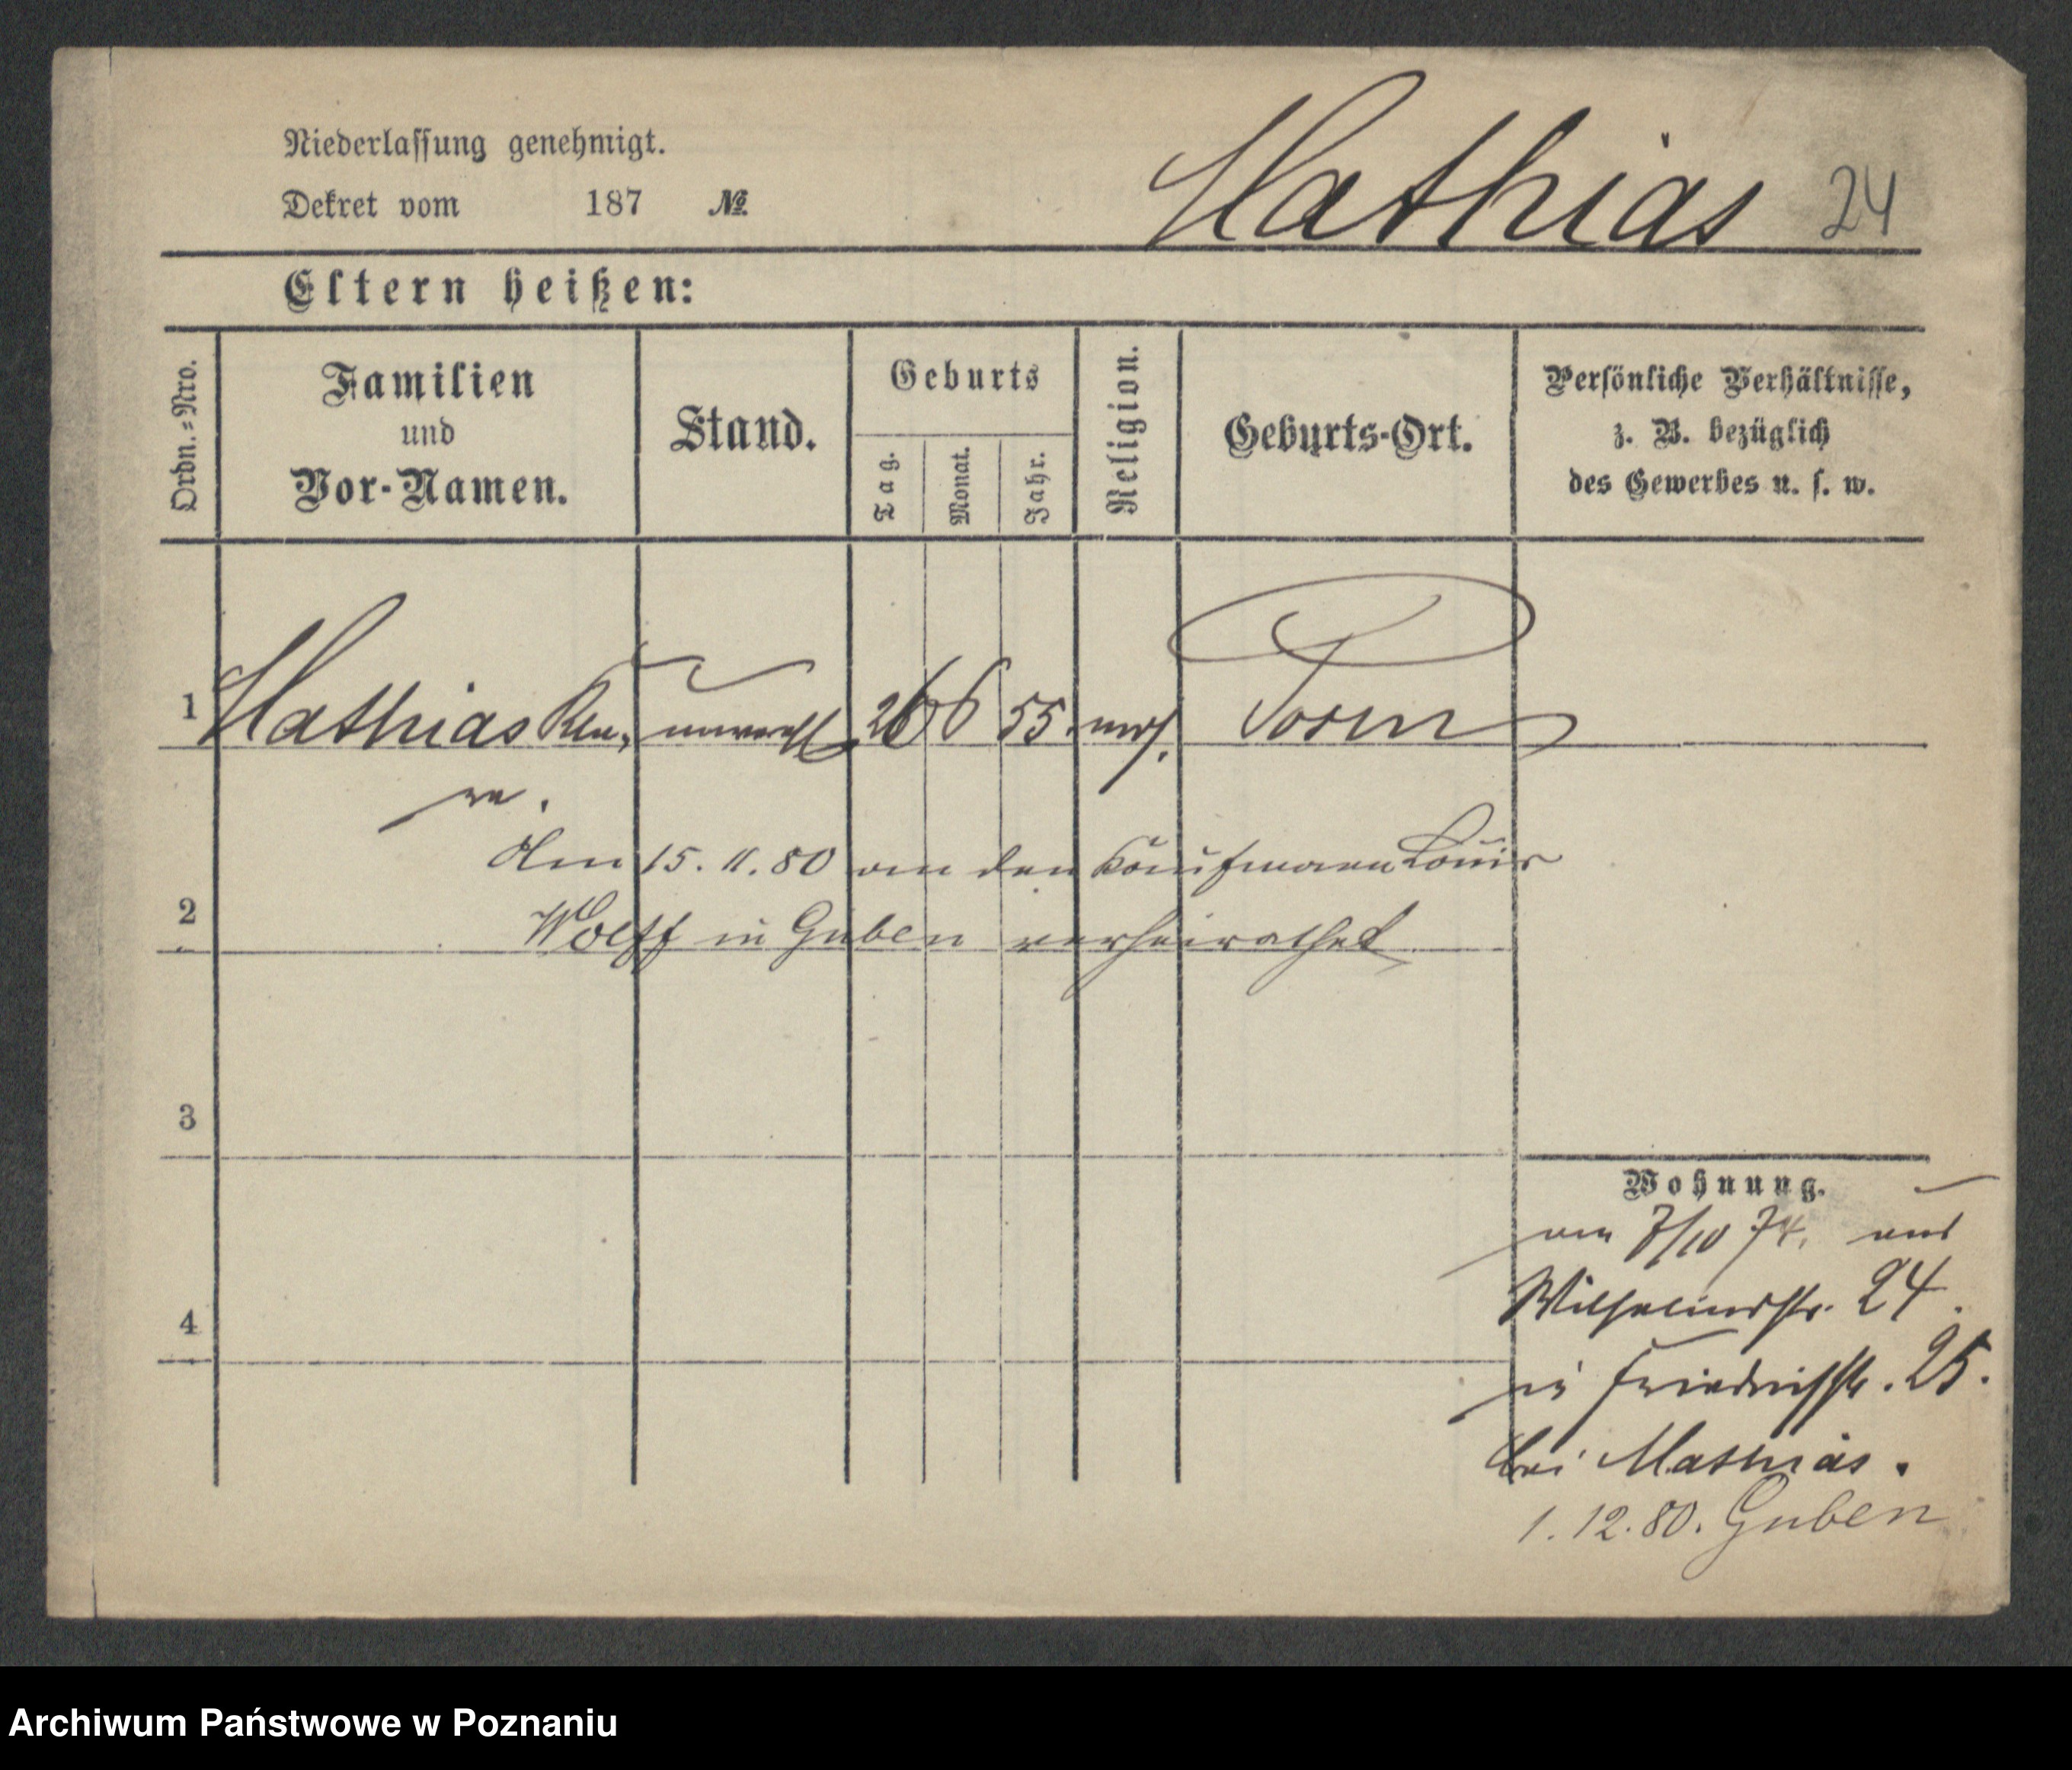 Niederlassung genehmigt.
Dekret vom 187 №
Mathias 24
Eltern heißen:
Ordn.=Nro.
Familien
und
Vor-Namen.
Stand.
Geburts
Tag.
Monat.
Jahr.
Religion.
Geburts-Ort.
Persönliche Verhältnisse,
z. B. bezüglich
des Gewerbes u. s. w.
1 Mathias 26 6 55. mos. Posen
Am 15. 11. 80 an den Kaufmann Louis
2 Wolff in Guben verheirathet
3
4
Wohnung.
am 7/10 74. aus
Wilhelmstr. 24.
in Friedrichstr. 25.
bei Mathias.
1. 12. 80. Guben
Archiwum Państwowe w Poznaniu